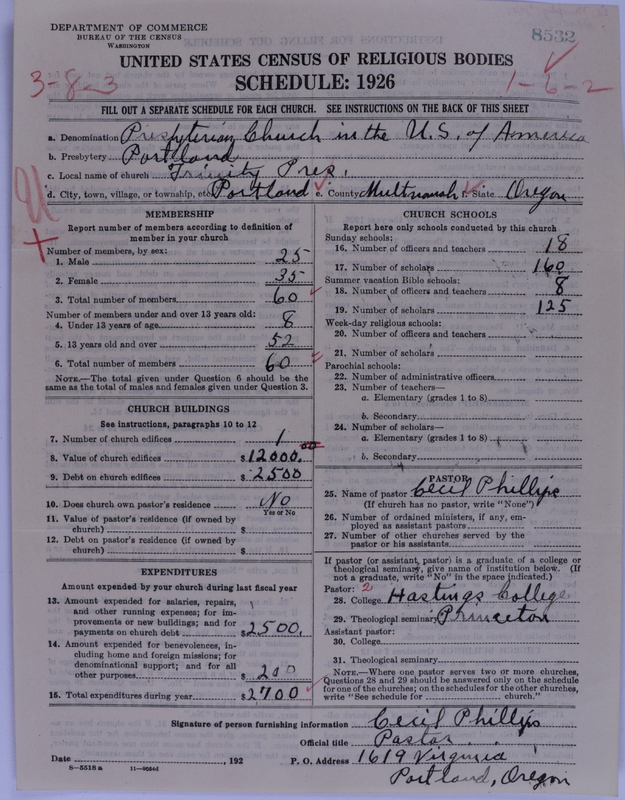 DEPARTMENT OF COMMERCE
BUREAU OF THE CENSUS
WASHINGTON
8532
UNITED STATES CENSUS OF RELIGIOUS BODIES
SCHEDULE: 1926
3-8-3
1-6-2
FILL OUT A SEPARATE SCHEDULE FOR EACH CHURCH. SEE INSTRUCTIONS ON THE BACK OF THIS SHEET
a. Denomination Presbyterian Church in the U.S. of America
b. Presbytery Portland
c. Local name of church Trinity Pres.
d. City, town, village, or township, etc. Portland e. County Multnomah f. State Oregon
MEMBERSHIP
Report number of members according to definition of
member in your church
Number of members, by sex:
1. Male 25
2. Female 35
3. Total number of members 60
Number of members under and over 13 years old:
4. Under 13 years of age 8
5. 13 years old and over 52
6. Total number of members 60
NOTE.—The total given under Question 6 should be the
same as the total of males and females given under Question 3.
CHURCH BUILDINGS
See instructions, paragraphs 10 to 12
7. Number of church edifices 1
8. Value of church edifices $12000.00
9. Debt on church edifices $2500
10. Does church own pastor's residence No
Yes or No
11. Value of pastor's residence (if owned by
church) $
12. Debt on pastor's residence (if owned by
church) $
EXPENDITURES
Amount expended by your church during last fiscal year
13. Amount expended for salaries, repairs,
and other running expenses; for im-
provements or new buildings; and for
payments on church debt $2500.
14. Amount expended for benevolences, in-
cluding home and foreign missions; for
denominational support; and for all
other purposes $200
15. Total expenditures during year $2700
CHURCH SCHOOLS
Report here only schools conducted by this church
Sunday schools:
16. Number of officers and teachers 18
17. Number of scholars 160
Summer vacation Bible schools:
18. Number of officers and teachers 8
19. Number of scholars 125
Week-day religious schools:
20. Number of officers and teachers
21. Number of scholars
Parochial schools:
22. Number of administrative officers
23. Number of teachers—
a. Elementary (grades 1 to 8)
b. Secondary
24. Number of scholars—
a. Elementary (grades 1 to 8)
b. Secondary
PASTOR
25. Name of pastor Cecil Phillips
(If church has no pastor, write "None")
26. Number of ordained ministers, if any, em-
ployed as assistant pastors
27. Number of other churches served by the
pastor or his assistants
If pastor (or assistant, pastor) is a graduate of a college or
theological seminary, give name of institution below. (If
not a graduate, write "No" in the space indicated.)
Pastor: 2
28. College Hastings College
29. Theological seminary Princeton
Assistant pastor:
30. College
31. Theological seminary
NOTE.—Where one pastor serves two or more churches,
Questions 28 and 29 should be answered only on the schedule
for one of the churches; on the schedules for the other churches,
write "See schedule for church."
Signature of person furnishing information Cecil Phillips
Official title Pastor
Date , 192 P. O. Address 1619 Virginia
8—5518 a Portland, Oregon